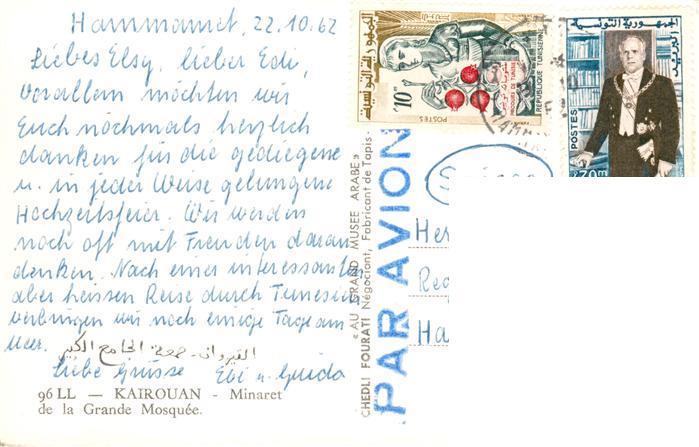 Hammamet, 22.10.62
Liebes Elsy, lieber Edi,
Vorallem möchten wir
Euch nochmals herzlich
danken für die gediegene
u. in jeder Weise gelungene
Hochzeitsfeier. Wir werden
noch oft mit Freuden daran
denken. Nach einer interessanten
aber heissen Reise durch Tunesien
verbringen wir noch einige Tage am
Meer.
القيروان - صومعة الجامع الكبير
Liebe Grüsse Ebi u. Guido
96 LL — KAIROUAN - Minaret
de la Grande Mosquée.
« AU GRAND MUSEE ARABE »
CHEDLI FOURATI Négociant, Fabricant de Tapis -
PAR AVION
الجمهورية التونسية
10m
POSTES
REPUBLIQUE TUNISIENNE
الجمهورية التونسية
البريد
POSTES
20m
Her
Ha